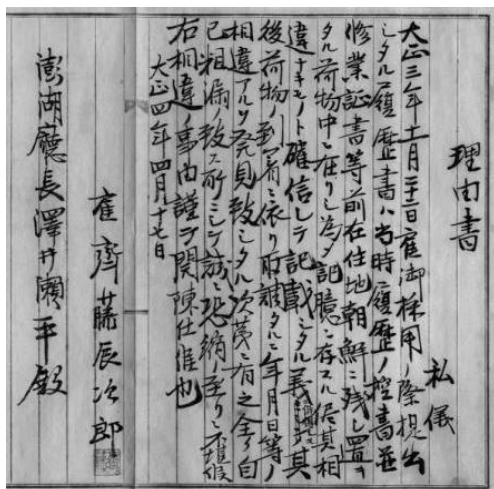 理由書
私儀
大正三年十二月二十二日雇御採用ノ際提出
シタル履歴書ハ当時履歴ノ控書並
修業証書等前在住地朝鮮ニ残シ置キ
タル荷物中ニ在リシ為メ記臆ニ存スル侭其相
違ナキモノト確信シテ記載シタル義ニ其
後荷物ノ到着ニ依リ取調タルニ年月日等ノ
相違アルヲ発見致シタル次第ニ有之全ク自
己粗漏ノ致ス所ニシテ誠ニ恐縮ノ至リニ不堪候
右相違ノ事由謹テ開陳仕候也
大正四年四月十七日
雇 齊藤辰次郎
澎湖廳長澤井瀬平殿